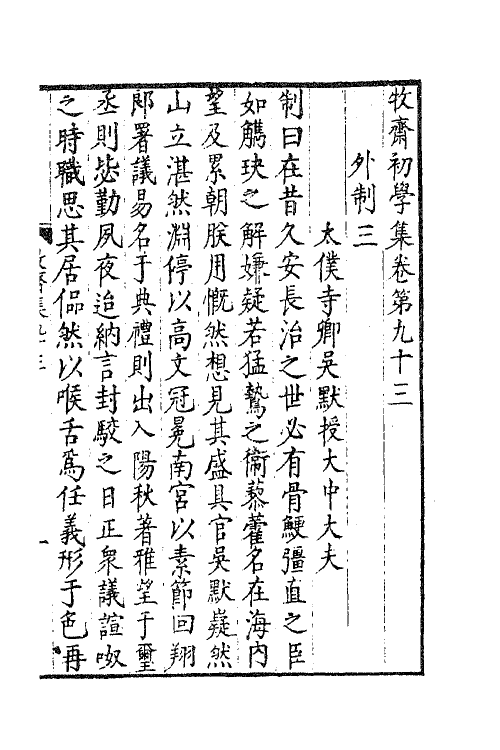 牧齋初學集卷第九十三
外制三
太僕寺卿吳默授大中大夫
制曰在昔久安長治之世必有骨鯁彊直之臣
如觿玦之解嫌疑若猛鷙之衞藜藿名在海内
望及累朝朕用慨然想見其盛具官吳默嶷然
山立湛然淵停以高文冠冕南宮以素節回翔
郎署議易名于典禮則出入陽秋著雅望于璽
丞則毖勤夙夜迨納言封駮之日正衆議諠呶
之時職思其居偘然以喉舌爲任義形于色再
牧齋集九十三
一